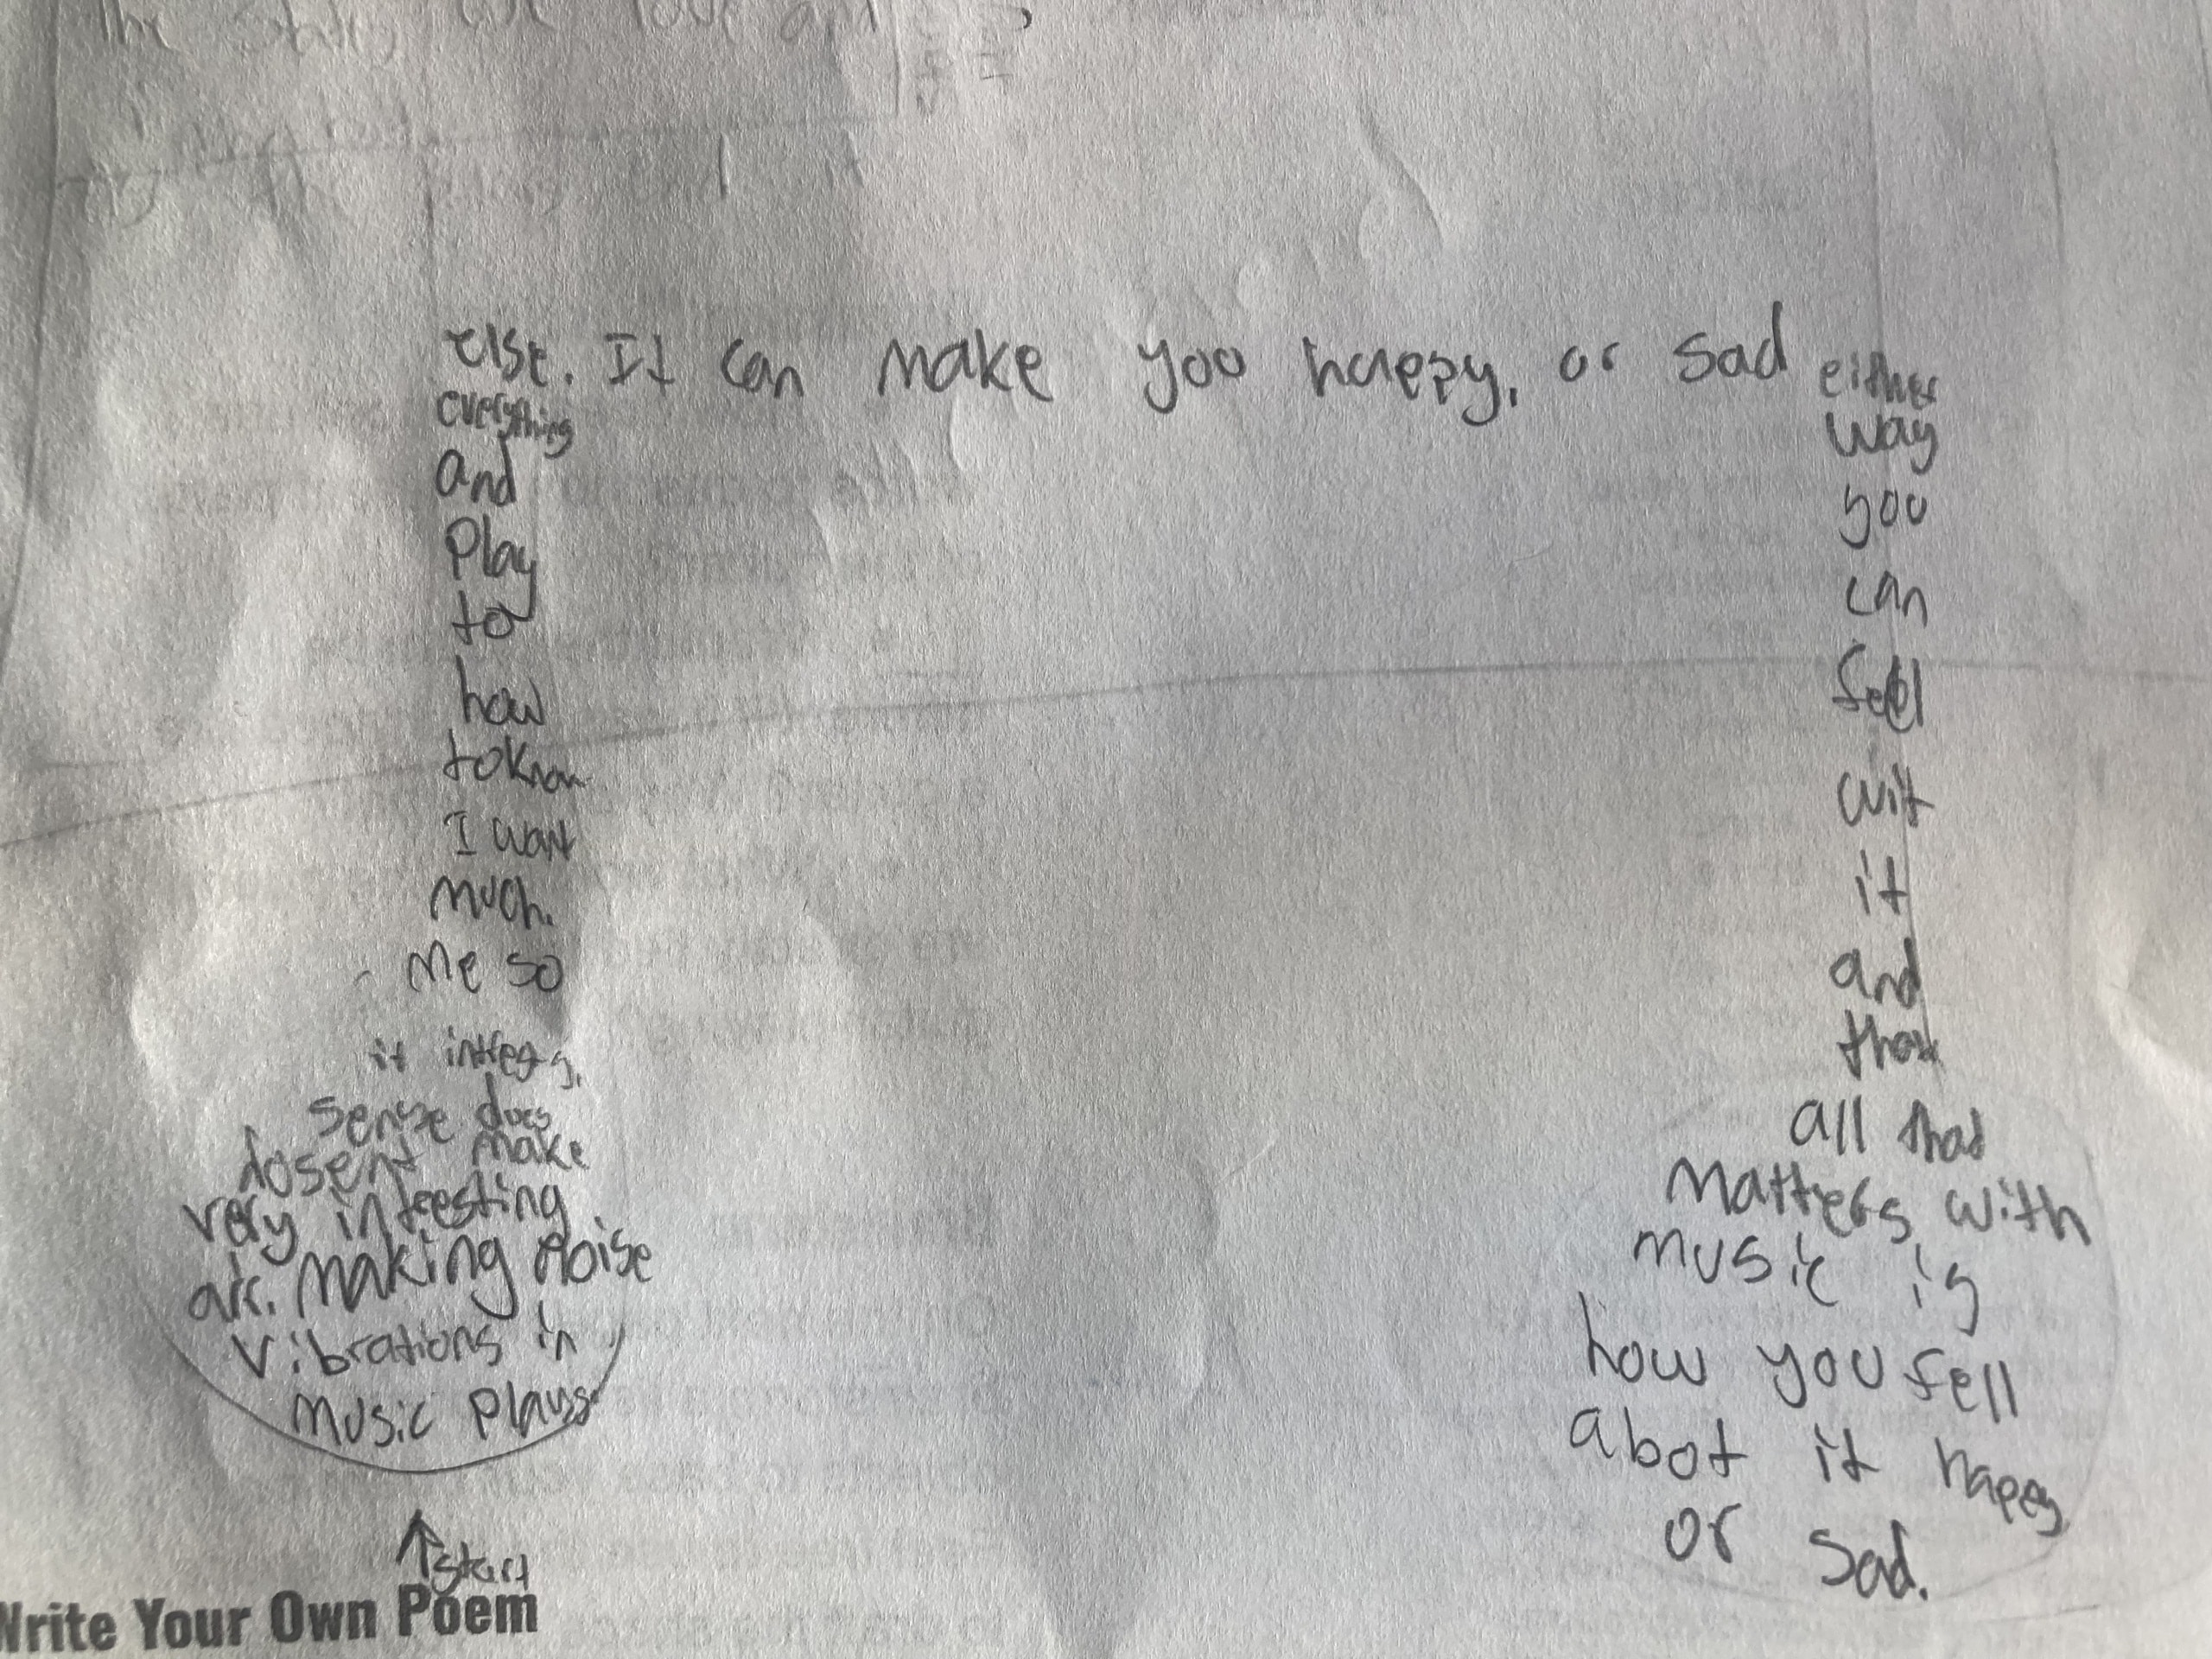 start
music plays
vibrations in
air. Making noise
very inteesting
dosent make
sense does
it
Me so
much.
I want
to know
how
to
Play
and
everything
else. It can make you happy, or sad either
way
you
can
feel
wit
it
and
that
all that
Matters with
music is
how you fell
abot it happy
or sad.
Write Your Own Poem